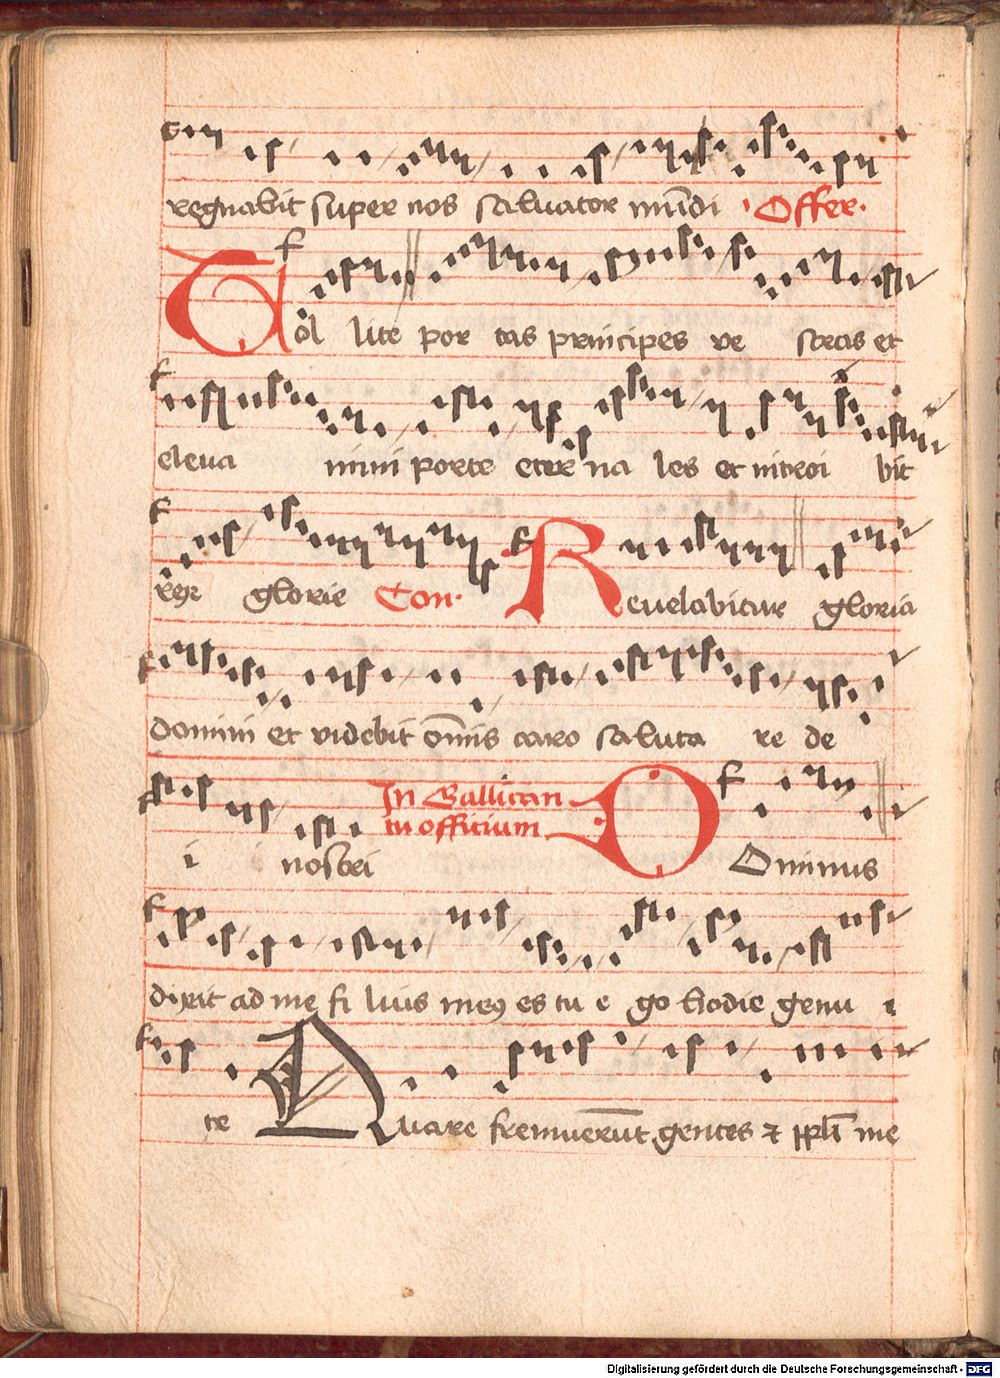 regnabit super nos saluator mu̅di Offer·
Tol lite por tas principes ve stras et
eleua mini porte eter na les et introi bit
rex glorie Con· Reuelabitur gloria
domini et videbit om̅is caro saluta re de
i nostri In Gallican
tu officium Dominus
dixit ad me fi lius meꝯ es tu e go hodie genu i
te Quare fremueru̅t gentes ⁊ ppl̅i me
Digitalisierung gefördert durch die Deutsche Forschungsgemeinschaft - DFG